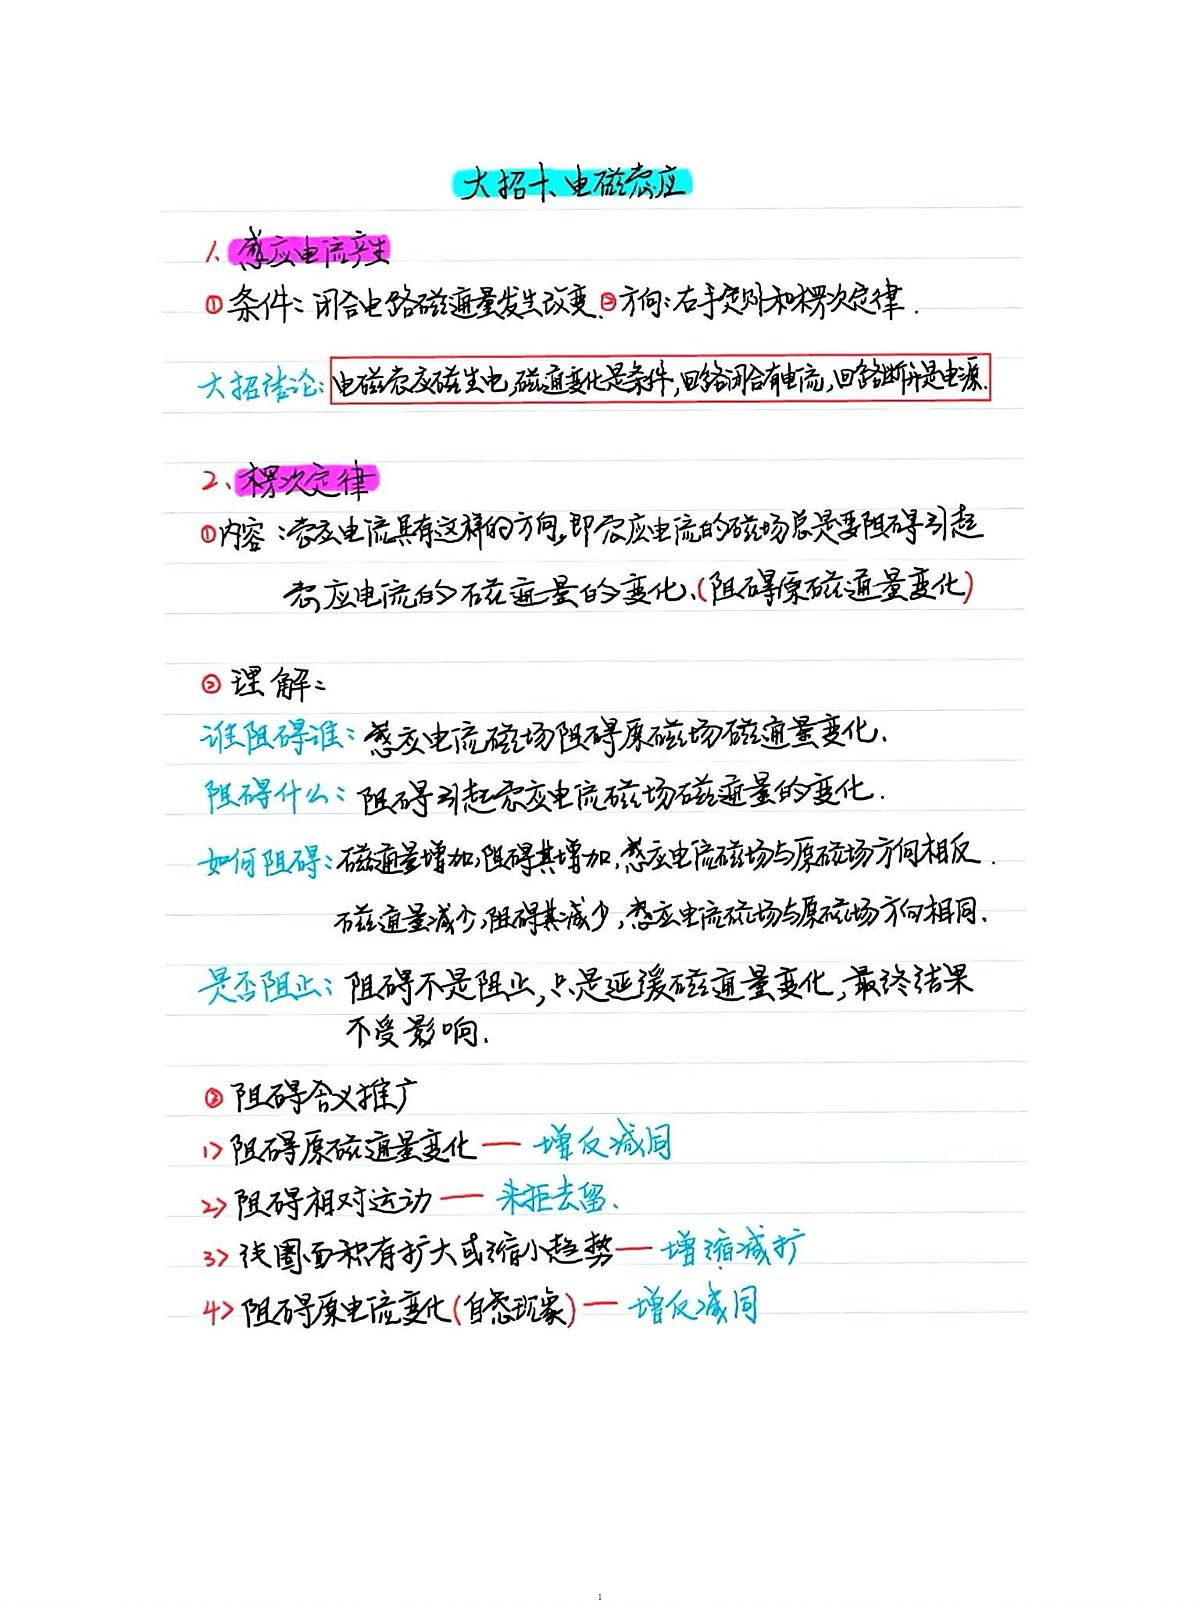 大招十、电磁感应
1、感应电流产生
①条件：闭合电路磁通量发生改变.②方向：右手定则和楞次定律.
大招结论：电磁感应磁生电,磁通变化是条件,回路闭合有电流,回路断开是电源.
2、楞次定律
①内容：感应电流具有这样的方向,即感应电流的磁场总是要阻碍引起
感应电流的磁通量的变化.(阻碍原磁通量变化)
②理解：
谁阻碍谁：感应电流磁场阻碍原磁场磁通量变化.
阻碍什么：阻碍引起感应电流磁场磁通量的变化.
如何阻碍：磁通量增加,阻碍其增加,感应电流磁场与原磁场方向相反.
磁通量减少,阻碍其减少,感应电流磁场与原磁场方向相同.
是否阻止：阻碍不是阻止,只是延缓磁通量变化,最终结果
不受影响.
③阻碍含义推广
1>阻碍原磁通量变化—增反减同
2>阻碍相对运动—来拒去留.
3>线圈面积有扩大或缩小趋势—增缩减扩
4>阻碍原电流变化(自感现象)—增反减同
1